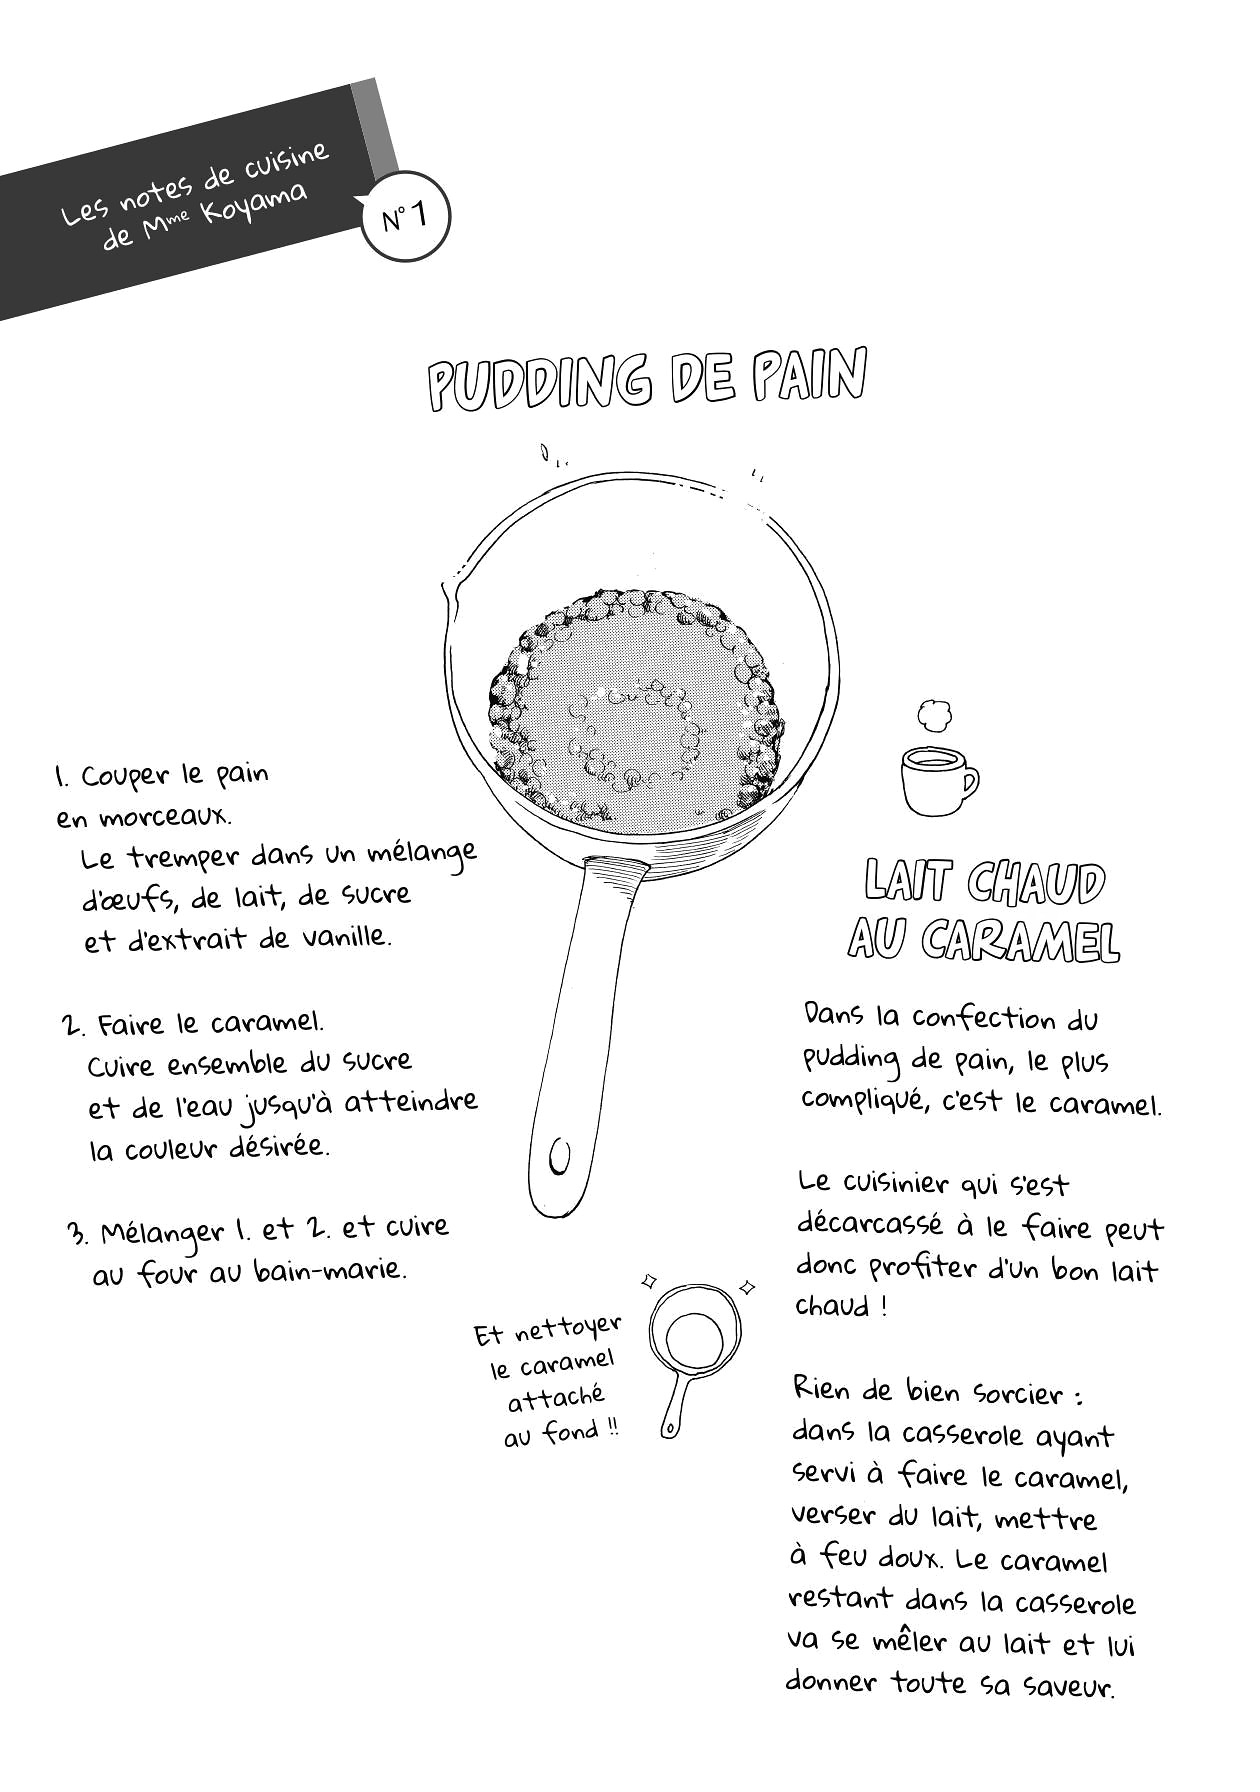 Les notes de cuisine
de Mme Koyama
N° 1
PUDDING DE PAIN
1. Couper le pain
en morceaux.
Le tremper dans un mélange
d'œufs, de lait, de sucre
et d'extrait de vanille.
2. Faire le caramel.
Cuire ensemble du sucre
et de l'eau jusqu'à atteindre
la couleur désirée.
3. Mélanger 1. et 2. et cuire
au four au bain-marie.
Et nettoyer
le caramel
attaché
au fond !!
LAIT CHAUD
AU CARAMEL
Dans la confection du
pudding de pain, le plus
compliqué, c'est le caramel.
Le cuisinier qui s'est
décarcassé à le faire peut
donc profiter d'un bon lait
chaud !
Rien de bien sorcier :
dans la casserole ayant
servi à faire le caramel,
verser du lait, mettre
à feu doux. Le caramel
restant dans la casserole
va se mêler au lait et lui
donner toute sa saveur.